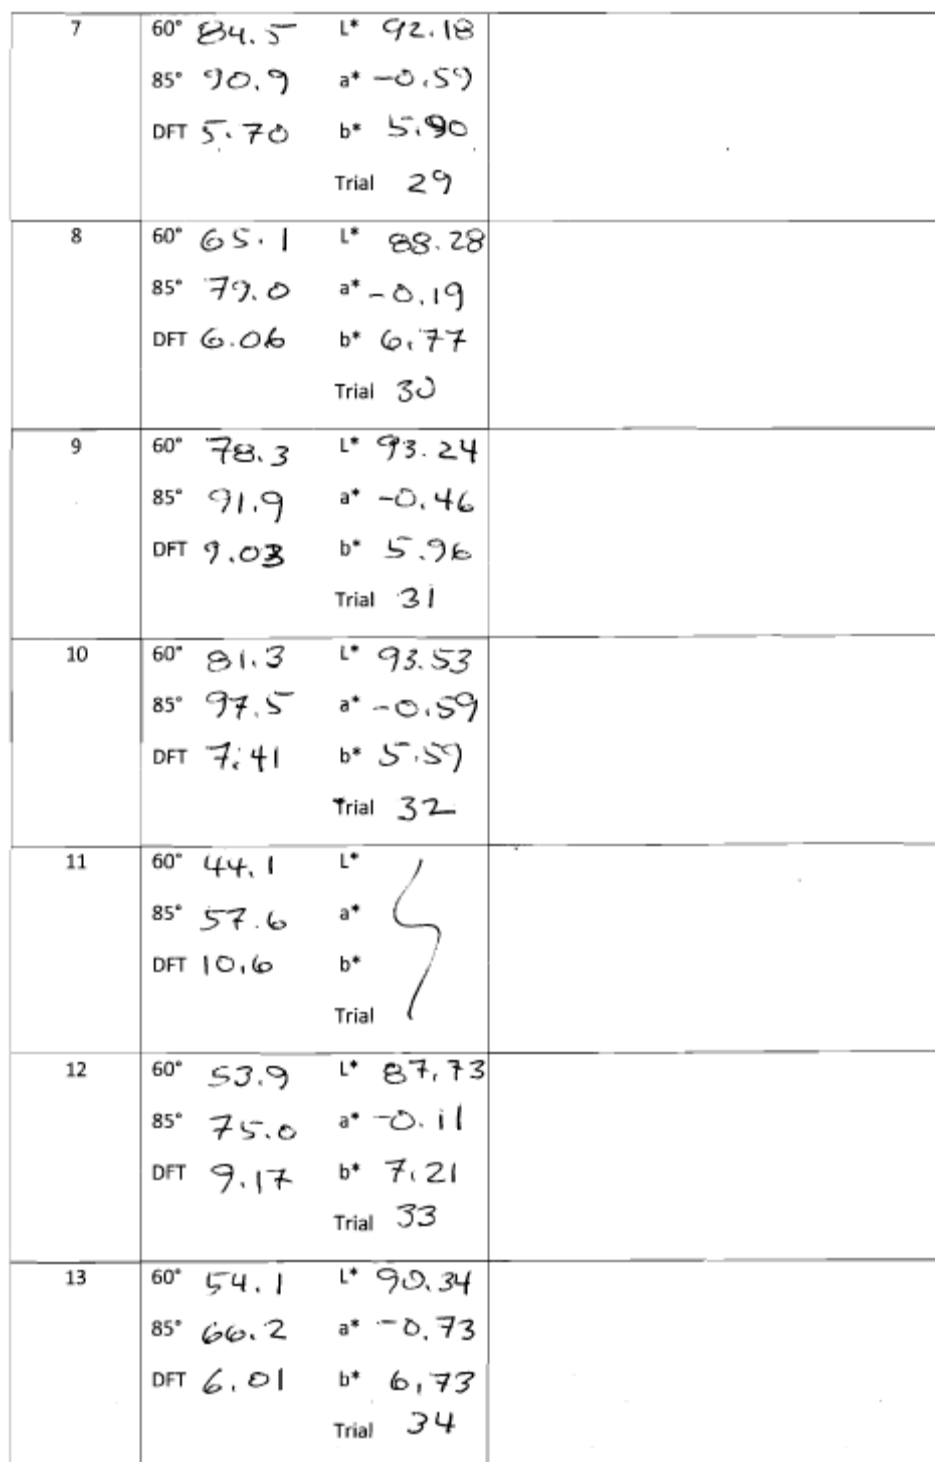 7 60° 84.5 L* 92.18
85° 90.9 a* -0.59
DFT 5.70 b* 5.90
Trial 29
8 60° 65.1 L* 88.28
85° 79.0 a* -0.19
DFT 6.06 b* 6.77
Trial 30
9 60° 78.3 L* 93.24
85° 91.9 a* -0.46
DFT 9.03 b* 5.96
Trial 31
10 60° 81.3 L* 93.53
85° 97.5 a* -0.59
DFT 7.41 b* 5.59
Trial 32
11 60° 44.1 L*
85° 57.6 a*
DFT 10.6 b*
Trial
12 60° 53.9 L* 87.73
85° 75.0 a* -0.11
DFT 9.17 b* 7.21
Trial 33
13 60° 54.1 L* 90.34
85° 66.2 a* -0.73
DFT 6.01 b* 6.73
Trial 34